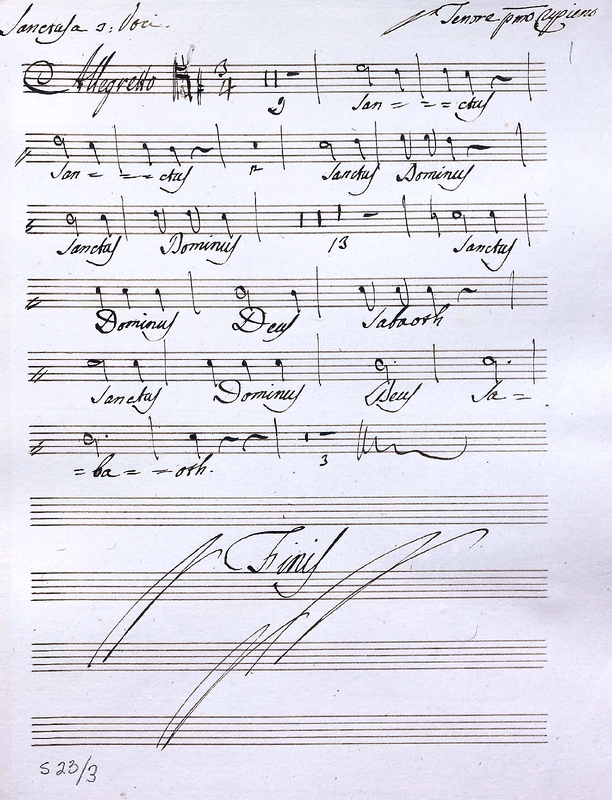 Sanctus a 2: Voci.
Tenore pmo Ripieno
1
Allegretto 3/4 9 San = = = ctus
San = = = ctus Sanctus Dominus
Sanctus Dominus 13 Sanctus
Dominus Deus Sabaoth
Sanctus Dominus Deus Sa =
= ba = = oth. 3
Finis
S 23/3